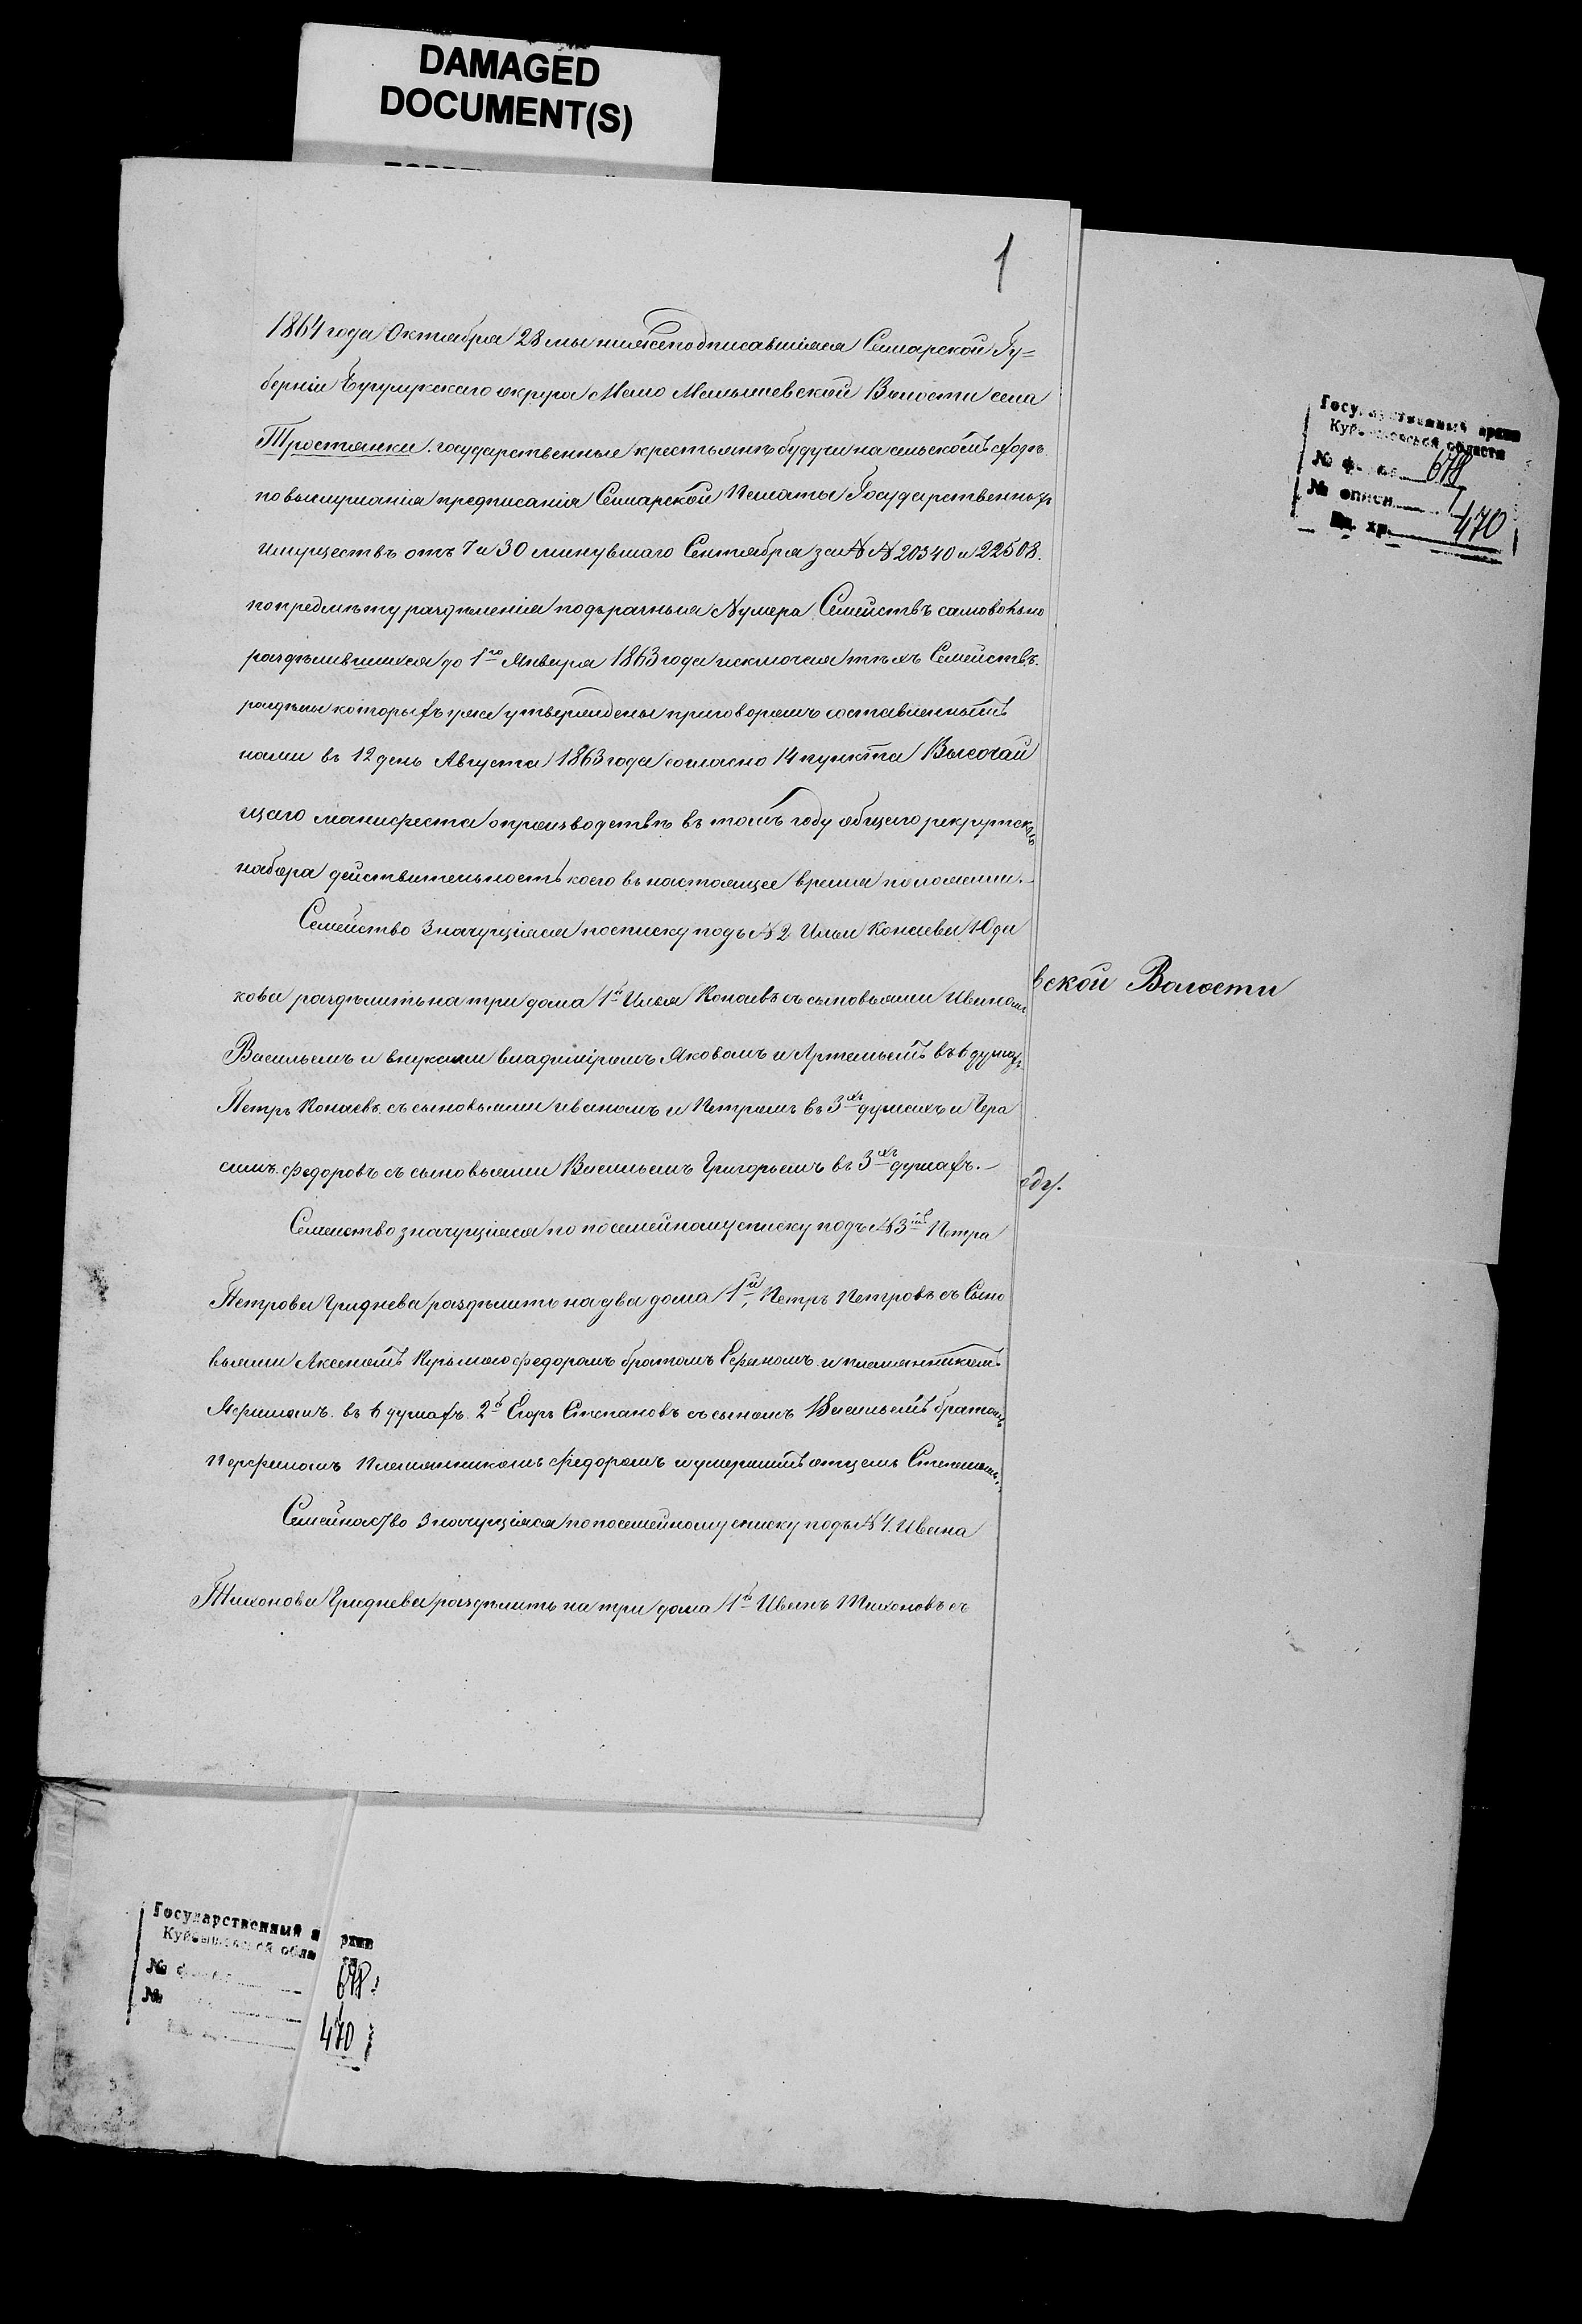 DAMAGED
DOCUMENT(S)
1
1864 года Октября 28 мы нижеподписавшіяся Самарской Гу=
берніи Бугурусскаго округа Мало Малышевской Волости села
Тростянки государственные крестьянъ будучи на сельскомъ сходѣ
по выслушанія предписанія Самарской Палаты Государственныхъ
имуществъ отъ 7 и 30 минувшаго Сентября за №№ 20340 и 22508.
по предмѣту раздѣленія подъ разныя Нумера Семействъ самовольно
раздѣлившихся до 1го Января 1863 года исключая тѣхъ Семействъ.
раздѣлы которыхъ уже утверждены приговоромъ составленнымъ
нами въ 12 день Августа 1863 года согласно 14 пункта Высочай
щаго манифеста о производствѣ въ томъ году общаго рекрутскаго
набора действительность коего въ настоящее время
Семейство Значущіяся по списку подъ № 2 Ильи Конаева Юда
кова раздѣлить на три дома 1й Илья Конаевъ съ сыновьями Иваномъ
Васильемъ и внуками владиміромъ Яковомъ и Артемьемъ въ 6 душахъ
Петръ Конаевъ съ сыновьями иваномъ и Петромъ въ 3хъ душахъ и Гера
симъ федоровъ съ сыновьями Васильемъ Григорьемъ въ 3хъ душахъ.
Семейство значущіяся по посемейному списку подъ № 3мъ Петра
Петрова Гриднева раздѣлить на два дома 1й, Петръ Петровъ съ Сыно
вьями Аксеномъ Кузьмою федоромъ братомъ и племянникомъ
въ 6 душахъ. 2й Егоръ Степановъ съ сыномъ Васильемъ братомъ
Парфиломъ Племянникомъ Федоромъ и умершимъ отцемъ Степаномъ,
Семейнаство Значущіяся по посемейному списку подъ № 4. Ивана
Тихонова Гриднева раздѣлить на три дома 1й Иванъ Тихоновъ съ
вской Волости
оду.
Государственный архив
Куйбышевской области
№ фонда 678
№ описи 1
Ед. хр. 470
Государственный архив
Куйбышевской обла
№ 678
№ 1
470